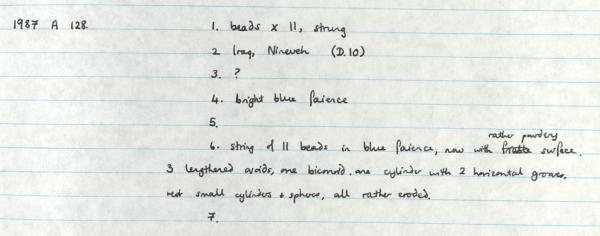 1987 A 128.
1. beads x 11, strung
2 Iraq, Nineveh (D.10)
3. ?
4. bright blue faience
5.
rather powdery
6. string of 11 beads in blue faience, now with friable surface.
3 lengthened ovoids, one biconoid, one cylinder with 2 horizontal grooves,
rest small cylinders + spheres, all rather eroded.
7.